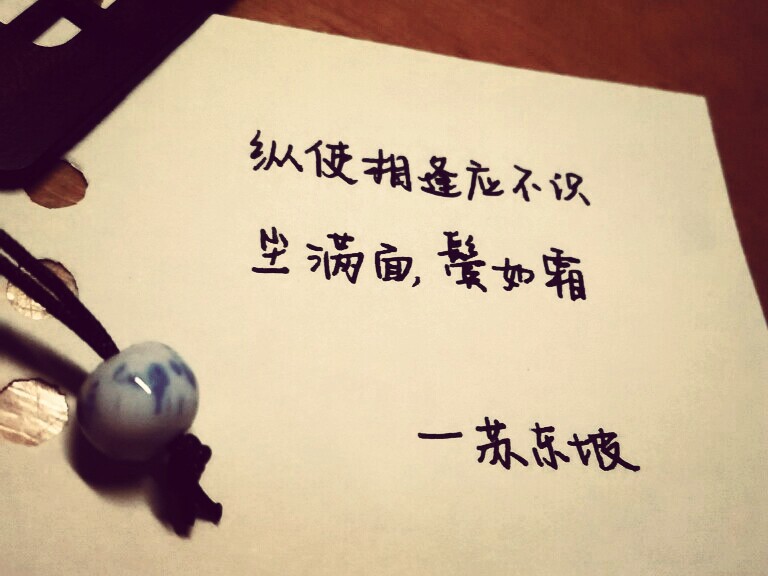 纵使相逢应不识
尘满面,鬓如霜
—苏东坡